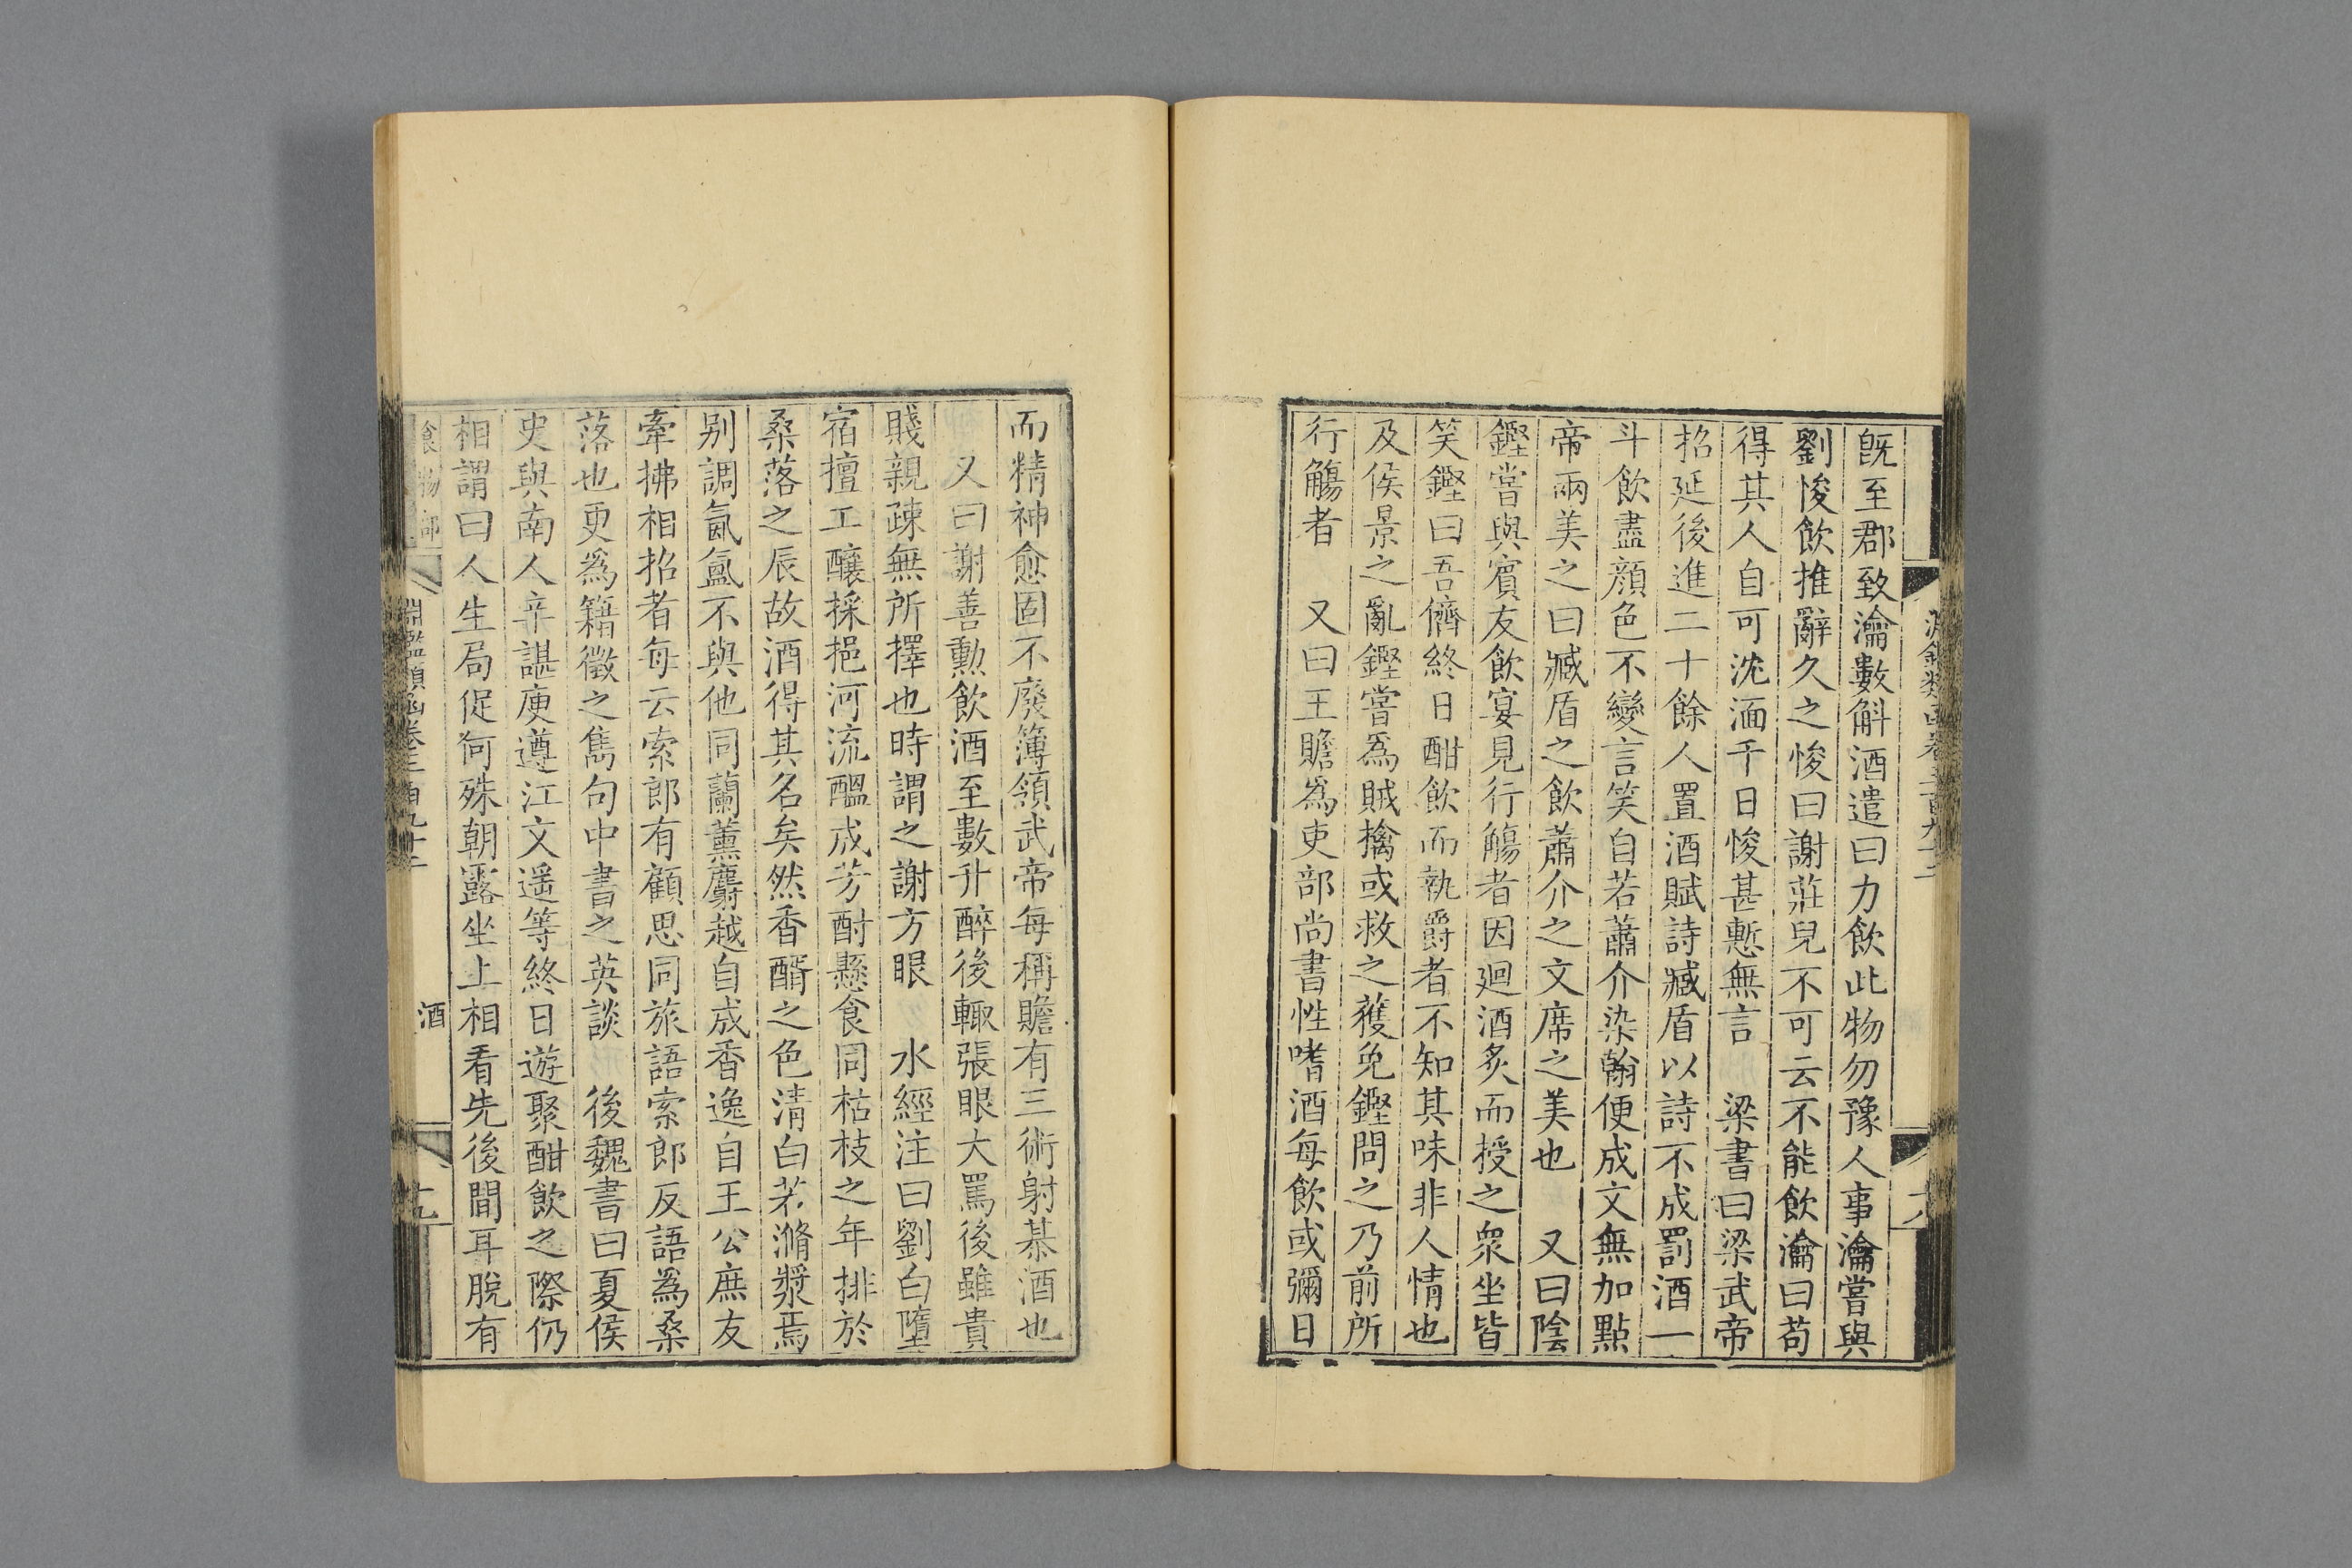 既至郡致瀹數斛酒遣曰力飲此物勿豫人事瀹嘗與
劉悛飲推辭久之悛曰謝莊兒不可云不能飲瀹曰苟
得其人自可沈湎千日悛甚慙無言　梁書曰梁武帝
招延後進二十餘人置酒賦詩臧盾以詩不成罰酒一
斗飲盡顔色不變言笑自若蕭介染翰便成文無加點
帝兩美之曰臧盾之飲蕭介之文席之美也　又曰陰
鏗嘗與賓友飲宴見行觴者因迴酒炙而授之衆坐皆
笑鏗曰吾儕終日酣飲而執爵者不知其味非人情也
及侯景之亂鏗嘗爲賊擒或救之獲免鏗問之乃前所
行觴者　又曰王瞻爲吏部尚書性嗜酒每飲或彌日
而精神愈固不廢簿領武帝每稱瞻有三術射棊酒也
又曰謝善勲飲酒至數升醉後輙張眼大罵後雖貴
賤親疎無所擇也時謂之謝方眼　水經注曰劉白墮
宿擅工釀採挹河流醞成芳酎懸食同枯枝之年排於
桑落之辰故酒得其名矣然香醑之色清白若滫漿焉
别調氤氳不與他同蘭薰麝越自成香逸自王公庶友
牽拂相招者每云索郎有顧思同旅語索郎反語爲桑
落也更爲籍徵之雋句中書之英談　後魏書曰夏侯
史與南人辛諶庾遵江文遥等終日遊聚酣飲之際仍
相謂曰人生局促何殊朝露坐上相看先後間耳脫有
食物部
淵鑑類函卷三百九十二
酒